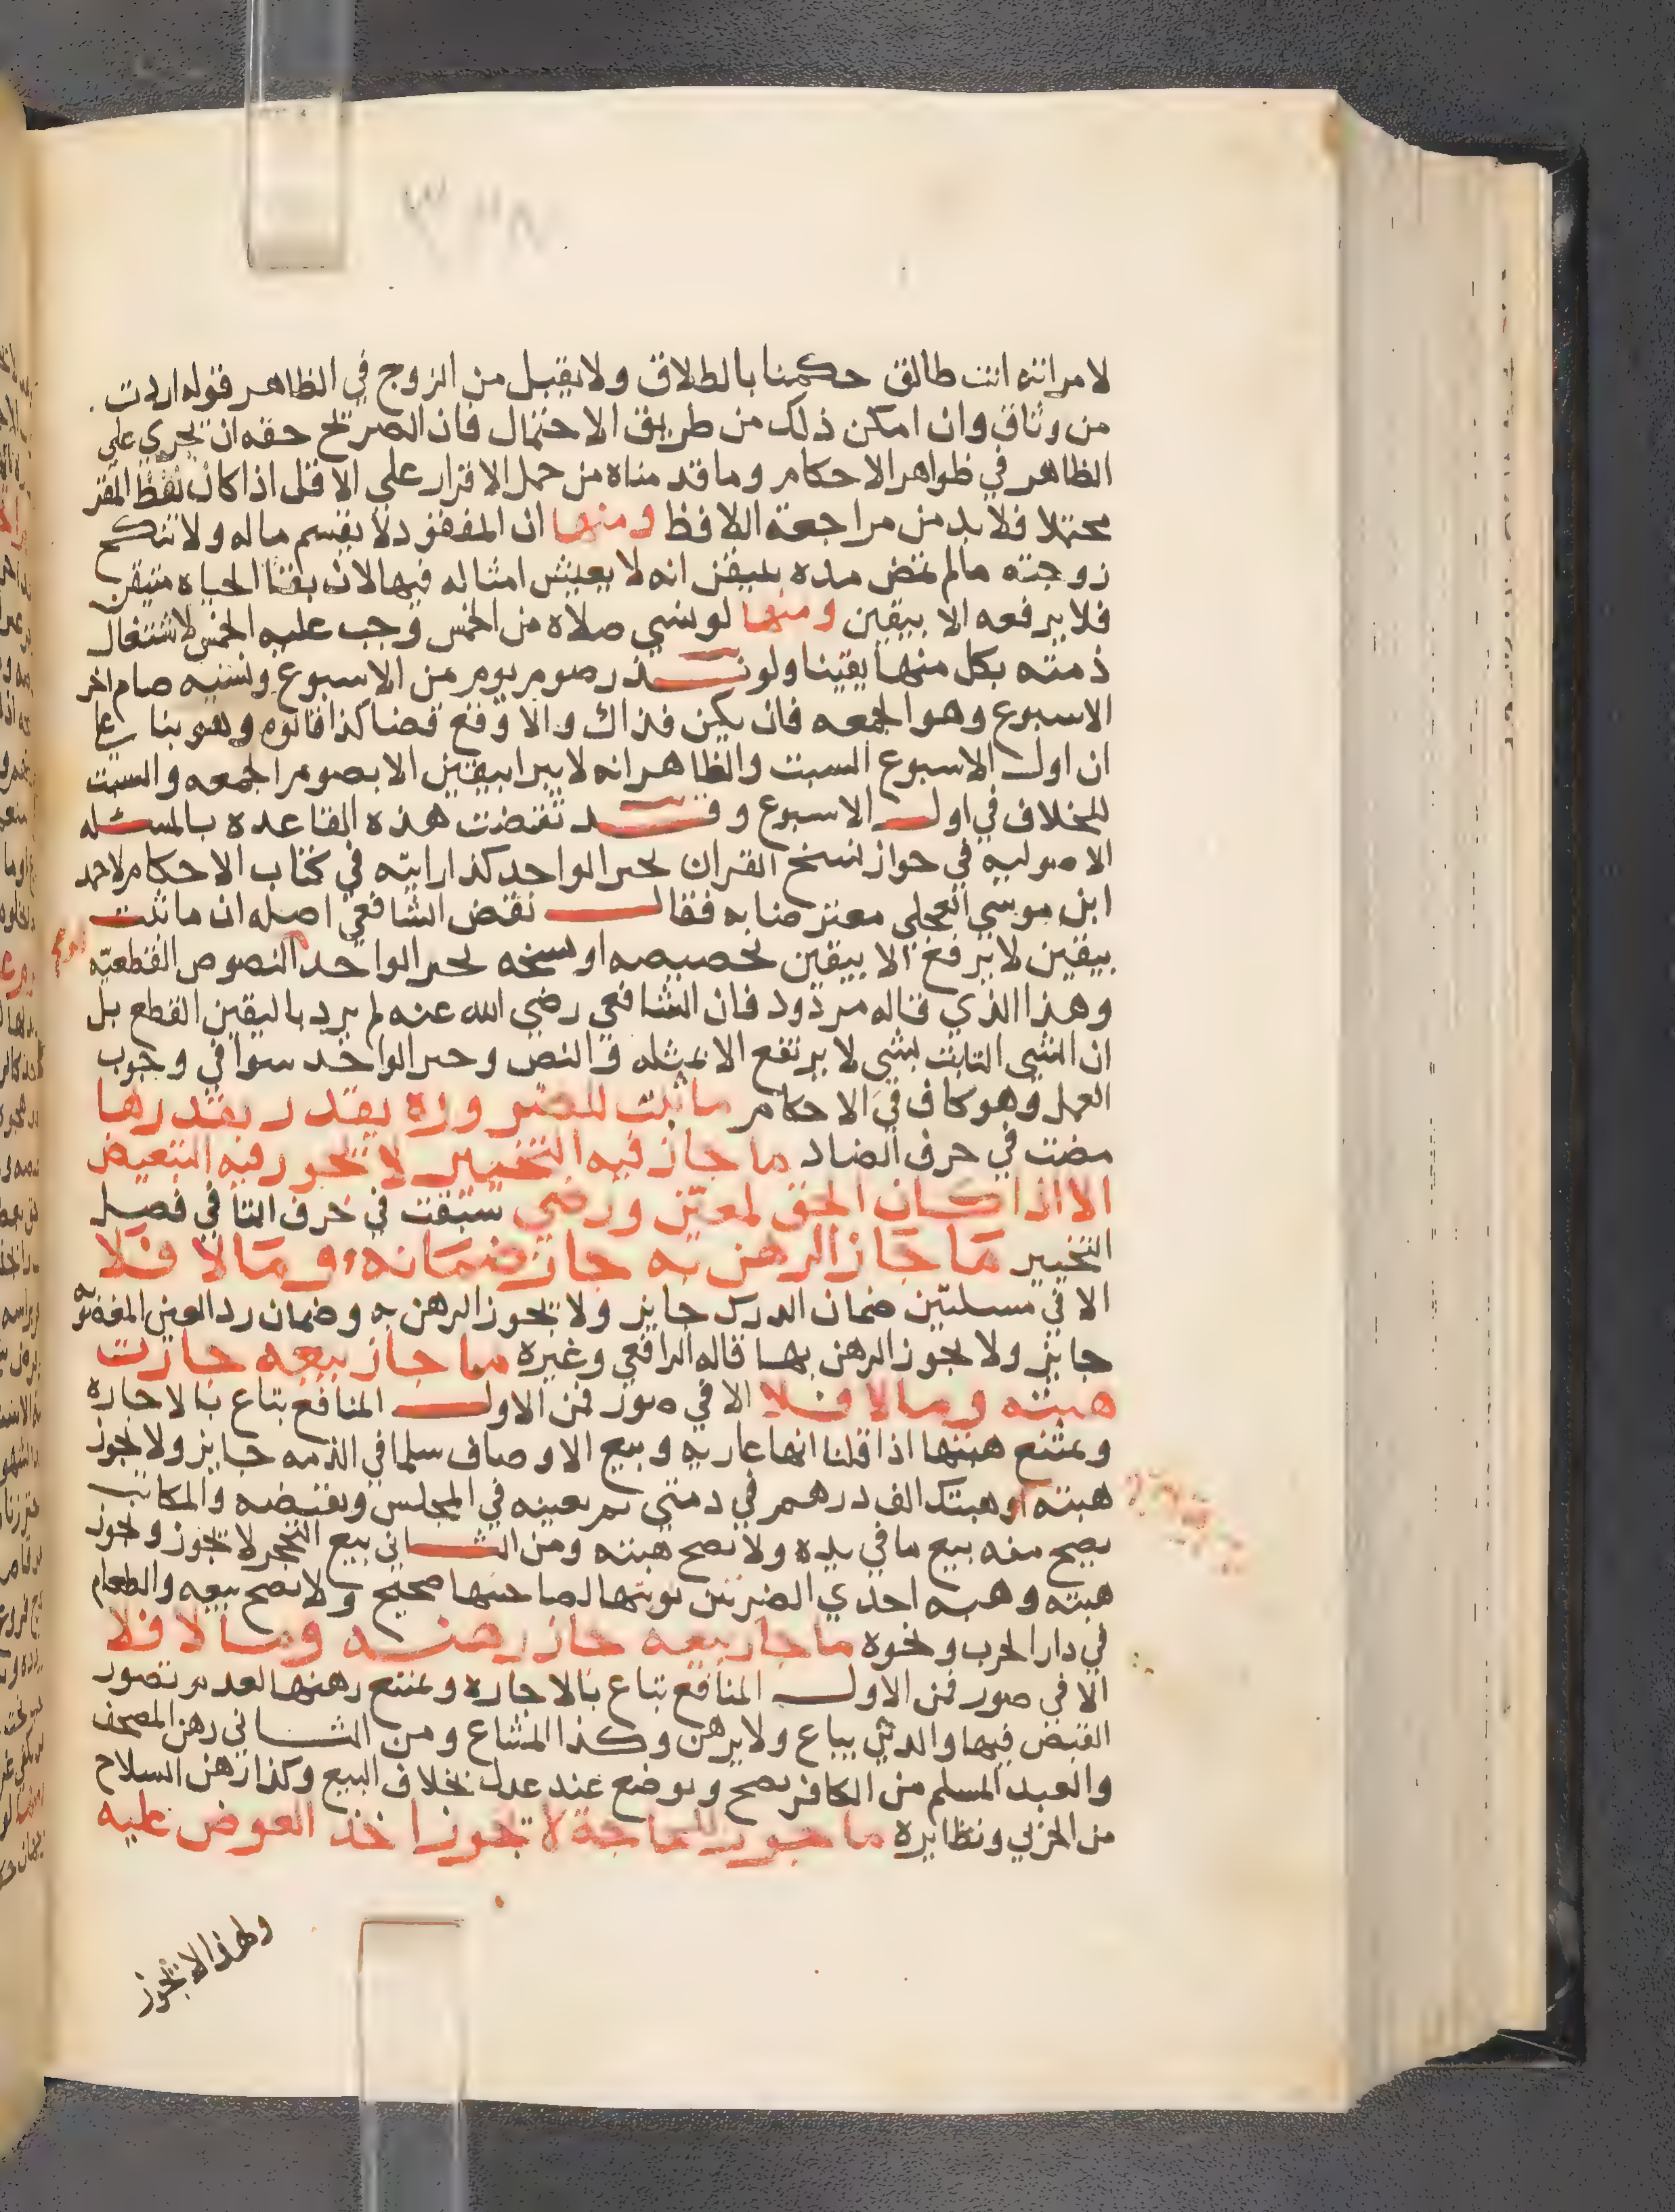 لامراته انت طالق حكمنا بالطلاق ولا يقبل من الزوج في الظاهر قوله اردت
من وثاق وان امكن ذلك من طريق الاحتمال فان الصريح حقه ان يجري على
الظاهر في ظواهر الاحكام وما قدمناه من حمل الاقرار على الاقل اذا كان لفظ المقر
محتملا فلا بد من مراجعة اللافظ ومنها ان المفقود لا يقسم ماله ولا تنكح
زوجته مالم تمض مده يتيقن انه لا يعيش امثاله فيها لان بقا الحياه متيقن
فلا يرفعه الا بيقين ومنها لو نسي صلاة من الخمس وجب عليه الخمس لاشتغال
ذمته بكل منها يقينا ولو نذر صوم يوم من الاسبوع ونسيه صام اخر
الاسبوع وهو الجمعه فان يكن فذاك والا وقع قضا كذا قالوه وهو بنا على
ان اول الاسبوع السبت والظاهر انه لا يبرا بيقين الا بصوم الجمعه والسبت
للخلاف في اول الاسبوع وقد نقضت هذه القاعده بالمسئله
الاصوليه في جواز نسخ القران بخبر الواحد كذا رايته في كتاب الاحكام لاحمد
ابن موسى العجلي معترضا به فقال نقض الشافعي اصله ان ما ثبت
بيقين لا يرفع الا بيقين تخصيصه او نسخه بخبر الواحد النصوص القطعيه
وهذا الذي قاله مردود فان الشافعي رضي الله عنه لم يرد باليقين القطع بل
ان الشي الثابت بشي لا يرتفع الا بمثله والنص وخبر الواحد سوا في وجوب
العمل وهو كاف في الاحكام ما ثبت للضروره يقدر بقدرها
مضت في حرف الضاد ما جاز فيه التخيير لا يجوز فيه التبعيض
الا اذا كان الحق لمعين ورضي سبقت في حرف التا في فصل
التخيير ما جاز الرهن به جاز ضمانه وما لا فلا
الا في مسلتين ضمان الدرك جايز ولا يجوز الرهن به وضمان رد العين المغصوبه
جايز ولا يجوز الرهن بها قاله الرافعي وغيره ما جاز بيعه جازت
هبته وما لا فلا الا في صور فمن الاول المنافع تباع بالاجاره
ويمتنع هبتها اذا قلنا انها عاريه وبيع الاوصاف سلما في الذمه جايز ولا يجوز
هبته كوهبتك الف درهم في ذمتي ثم يعينه في المجلس ويقبضه والمكاتب
يصح منه بيع ما في يده ولا تصح هبته ومن الثاني بيع التحجر لا يجوز ويجوز
هبته وهبه احدي الضرتين نوبتها لصاحبتها صحيح ولا يصح بيعه والطعام
في دار الحرب ونحوه ما جاز بيعه جاز رهنه وما لا فلا
الا في صور فمن الاول المنافع تباع بالاجاره ويمتنع رهنها لعدم تصور
القبض فيها والدين يباع ولا يرهن وكذا المشاع ومن الثاني رهن المصحف
والعبد المسلم من الكافر يصح ويوضع عند عدل بخلاف البيع وكذا رهن السلاح
من الحربي ونظايره ما جوز للحاجة لا يجوز اخذ العوض عليه
ولهذا لا يجوز